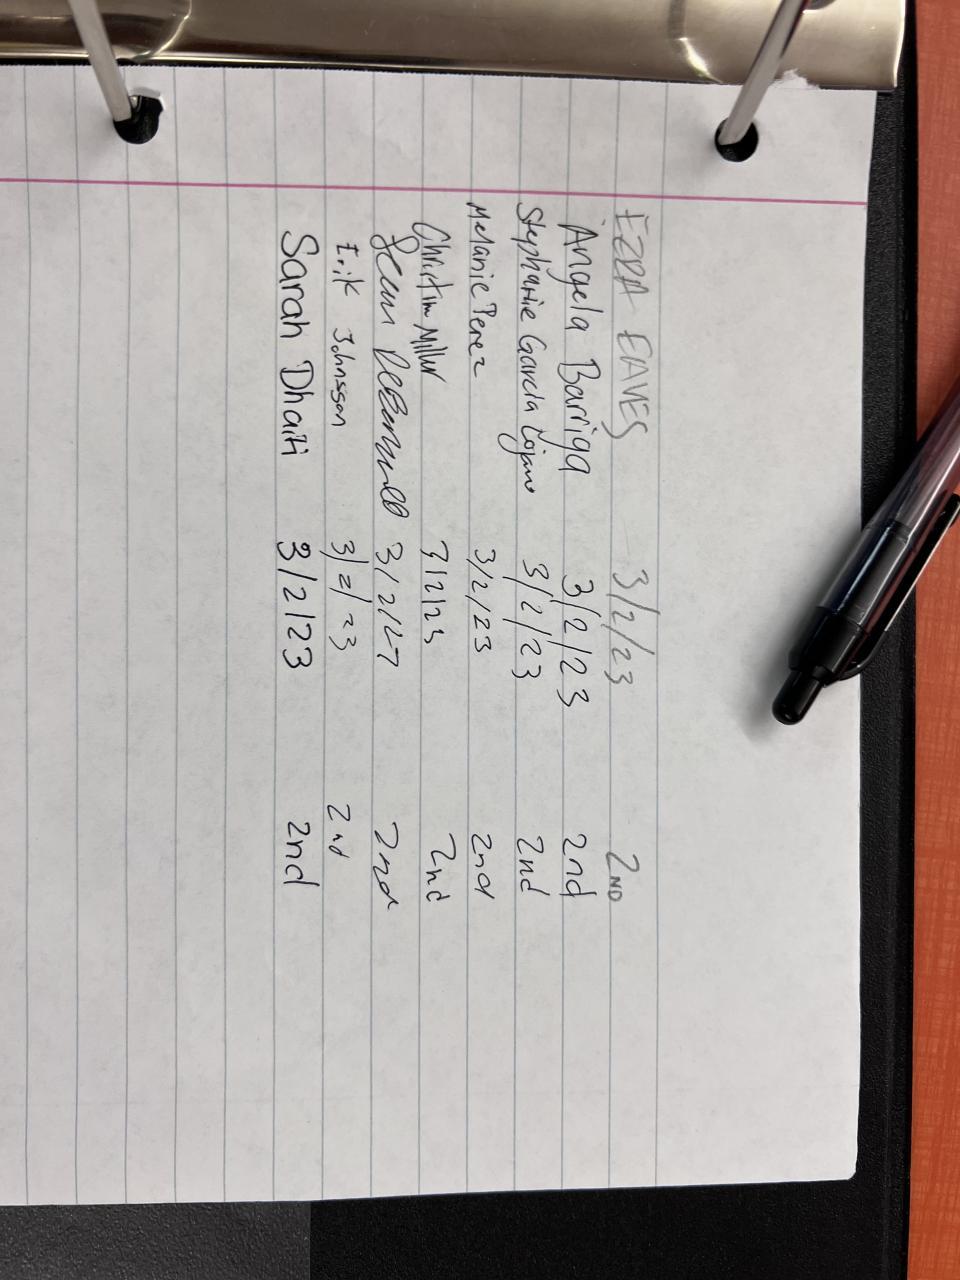 EZRA EAVES 3/2/23 2ND
Angela Barriga 3/2/23 2nd
Stephanie Garcia Lojano 3/2/23 2nd
Melanie Perez 3/2/23 2nd
Christian Miller 3/2/23 2nd
3/2/27 2nd
Erik Johnsson 3/2/23 2nd
Sarah Dhaiti 3/2/23 2nd